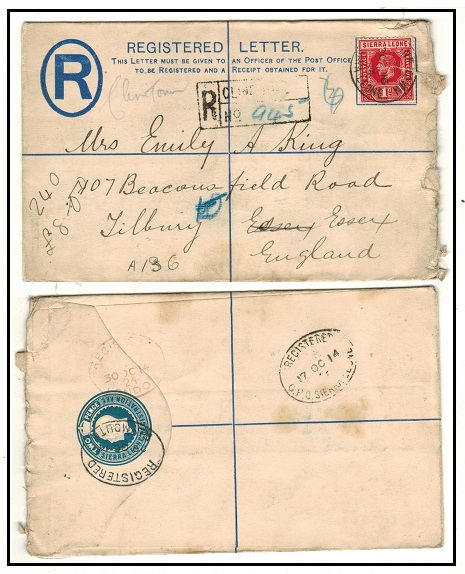 REGISTERED LETTER.
THIS LETTER MUST BE GIVEN TO AN OFFICER OF THE POST OFFICE
TO BE REGISTERED AND A RECEIPT OBTAINED FOR IT.
R
SIERRA LEONE
1d
R
No 945
Mrs Emily A King
107 Beaconsfield Road
Tilbury Essex Essex
England
A136
240
REGISTERED
17 OC 14
G.P.O. SIERRA LEONE
30 OC 14
TWO PENCE
SIERRA LEONE
REGISTERED